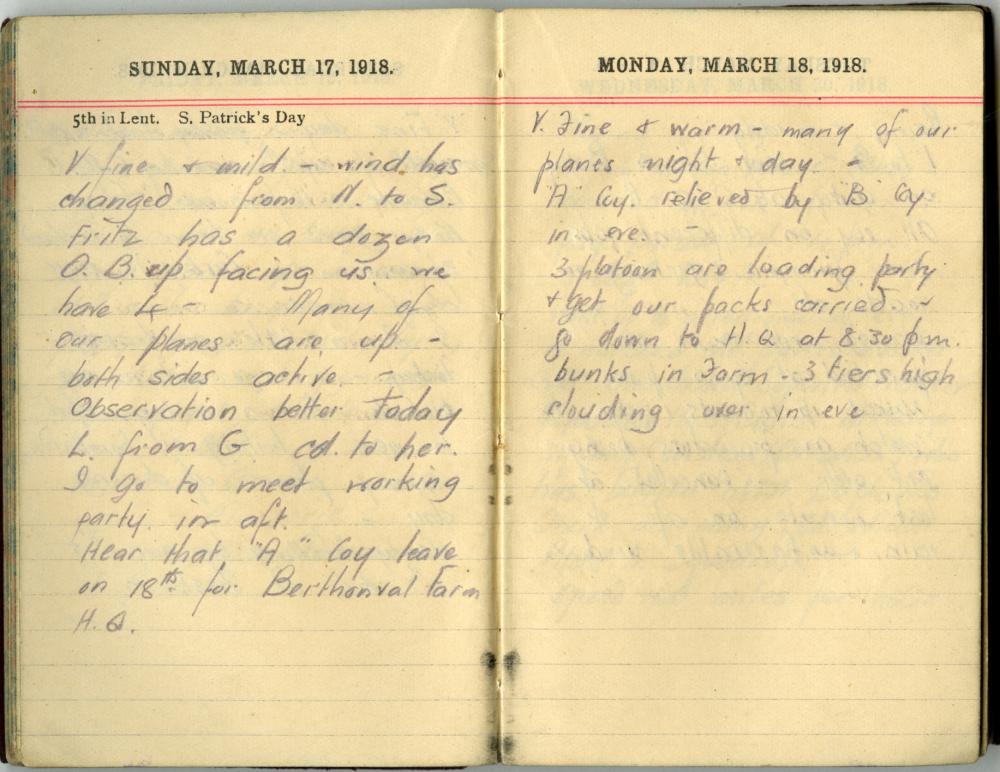 SUNDAY, MARCH 17, 1918.
5th in Lent. S. Patrick's Day
V. fine & mild. - wind has
changed from N. to S.
Fritz has a dozen
O. B. up facing us. we
have 4 - Many of
our planes are up -
both sides active. -
Observation better today
L. from G. cd. to her.
I go to meet working
party. in aft.
Hear that "A" Coy leave
on 18th for Berthonval Farm
H. Q.
MONDAY, MARCH 18, 1918.
V. Fine & warm - many of our
planes night & day. -
"A" Coy. relieved by "B" Coy
in eve. -
3 platoon are loading party
& get our packs carried &
go down to H. Q at 8.30 p.m.
bunks in Farm - 3 tiers high
clouding over in eve